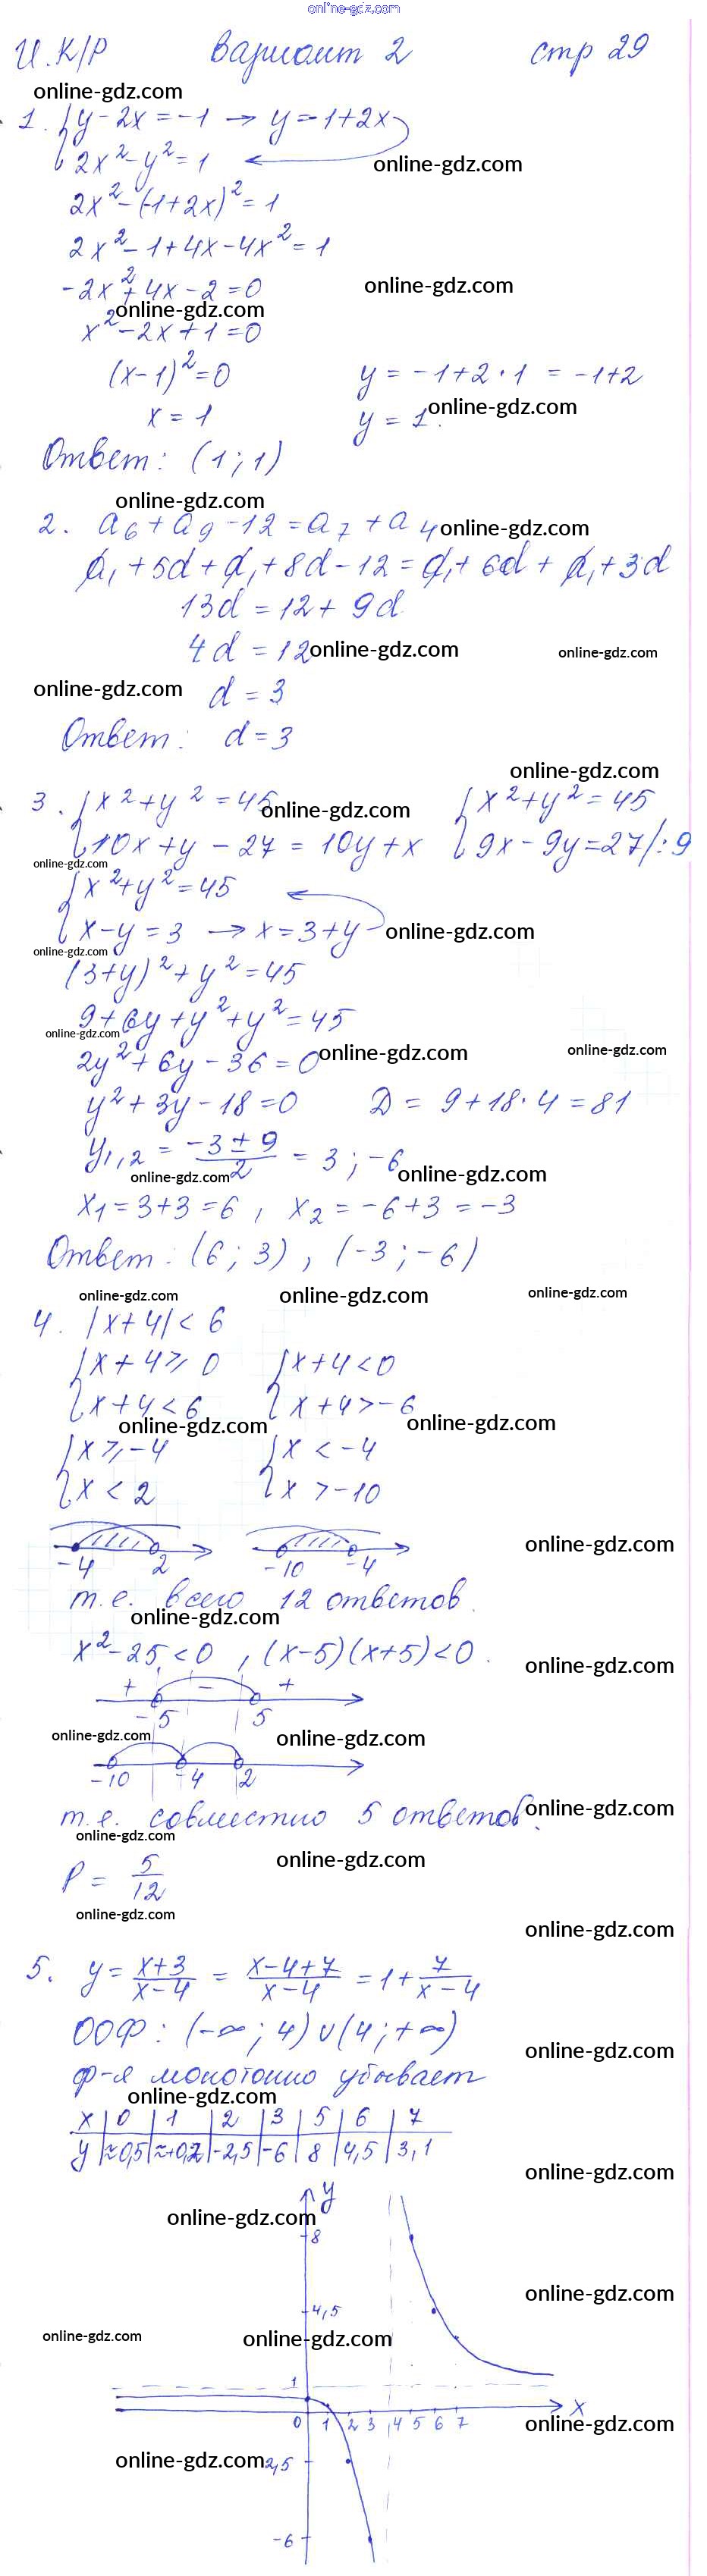 online-gdz.com
И.К/Р Вариант 2 стр 29
online-gdz.com
1. { y - 2x = -1 → y = -1+2x
2x² - y² = 1 ←
online-gdz.com
2x² - (-1+2x)² = 1
2x² - 1 + 4x - 4x² = 1
-2x² + 4x - 2 = 0
online-gdz.com
online-gdz.com
x² - 2x + 1 = 0
(x-1)² = 0 y = -1+2·1 = -1+2
x = 1 y = 1.
online-gdz.com
Ответ: (1; 1)
online-gdz.com
2. a₆ + a₉ - 12 = a₇ + a₄
online-gdz.com
a₁ + 5d + a₁ + 8d - 12 = a₁ + 6d + a₁ + 3d
13d = 12 + 9d
4d = 12
online-gdz.com
online-gdz.com
online-gdz.com
d = 3
Ответ: d = 3
online-gdz.com
3. { x² + y² = 45 { x² + y² = 45
online-gdz.com
10x + y - 27 = 10y + x 9x - 9y = 27 /:9
online-gdz.com
{ x² + y² = 45 ←
x - y = 3 → x = 3+y
online-gdz.com
online-gdz.com
(3+y)² + y² = 45
9 + 6y + y² + y² = 45
online-gdz.com
2y² + 6y - 36 = 0
online-gdz.com
online-gdz.com
y² + 3y - 18 = 0 D = 9 + 18·4 = 81
y₁,₂ = (-3 ± 9)/2 = 3; -6
online-gdz.com
online-gdz.com
x₁ = 3+3 = 6, x₂ = -6+3 = -3
Ответ: (6; 3), (-3; -6)
online-gdz.com
online-gdz.com
online-gdz.com
4. |x+4| < 6
{ x+4 ⩾ 0 { x+4 < 0
x+4 < 6 x+4 > -6
online-gdz.com
online-gdz.com
{ x ⩾ -4 { x < -4
x < 2 x > -10
online-gdz.com
-4 2 -10 -4
т.е. всего 12 ответов.
online-gdz.com
x² - 25 < 0, (x-5)(x+5) < 0.
online-gdz.com
+ - +
-5 5
online-gdz.com
online-gdz.com
-10 -4 2
т.е. совместно 5 ответов.
online-gdz.com
online-gdz.com
P = 5/12
online-gdz.com
online-gdz.com
online-gdz.com
5. y = (x+3)/(x-4) = (x-4+7)/(x-4) = 1 + 7/(x-4)
ООФ: (-∞; 4) ∪ (4; +∞)
online-gdz.com
ф-я монотонно убывает
online-gdz.com
x | 0 | 1 | 2 | 3 | 5 | 6 | 7
-2,5 | -6 | 8 | 4,5 | 3,1
online-gdz.com
y
online-gdz.com
8
online-gdz.com
4,5
online-gdz.com
online-gdz.com
1
0 1 2 3 4 5 6 7 x
online-gdz.com
online-gdz.com
2,5
-6